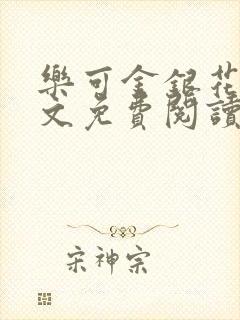 樂可金銀花
文免費閱讀
宋神宗